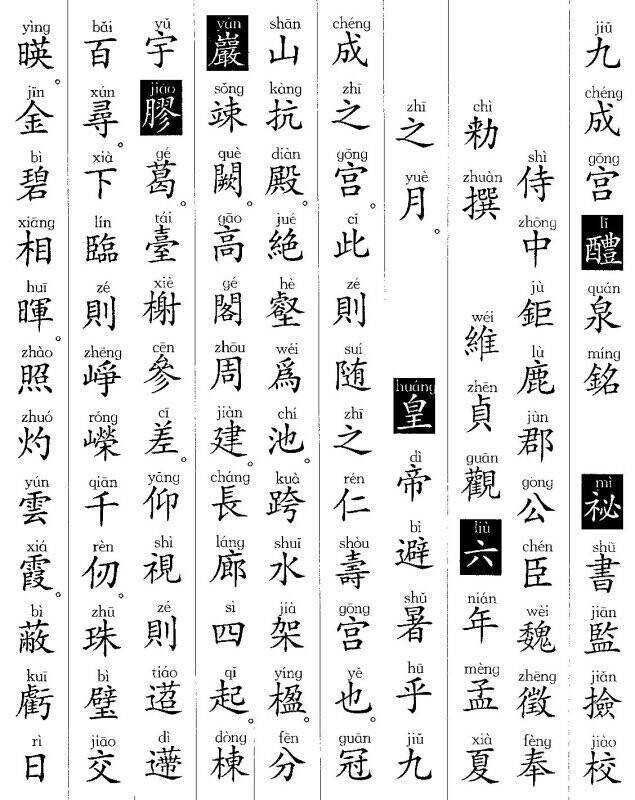 jiǔ chéng gōng lǐ quán míng mì shū jiān jiǎn jiào
九成宮醴泉銘 祕書監撿校
shì zhōng jù lù jùn gōng chén wèi zhēng fèng
侍中鉅鹿郡公臣魏徵奉
chì zhuàn wéi zhēn guān liù nián mèng xià
勑撰 維貞觀六年孟夏
zhī yuè huáng dì bì shǔ hū jiǔ
之月。皇帝避暑乎九
chéng zhī gōng cǐ zé suí zhī rén shòu gōng yě guān
成之宮。此則随之仁壽宮也。冠
shān kàng diàn jué hè wéi chí kuà shuǐ jià yíng fēn
山抗殿。絶壑爲池。跨水架楹。分
yán sǒng què gāo gé zhōu jiàn cháng láng sì qǐ dòng
巖竦闕。高閣周建。長廊四起。棟
yǔ jiāo gé tái xiè cēn cī yǎng shì zé tiáo dì
宇膠葛。臺榭參差。仰視則迢遰
bǎi xún xià lín zé zhēng róng qiān rèn zhū bì jiāo
百尋。下臨則崢嶸千仞。珠璧交
yìng jīn bì xiāng huī zhào zhuó yún xiá bì kuī rì
暎。金碧相暉。照灼雲霞。蔽虧日